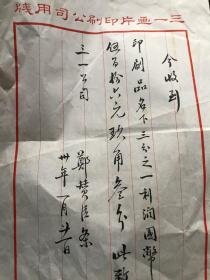 三一画片印刷公司用牋
今收到
印刷品名下三分之一利润国幣
伍百拾六元玖角叁分 此致
三一公司
鄭
卅年 月廿一日